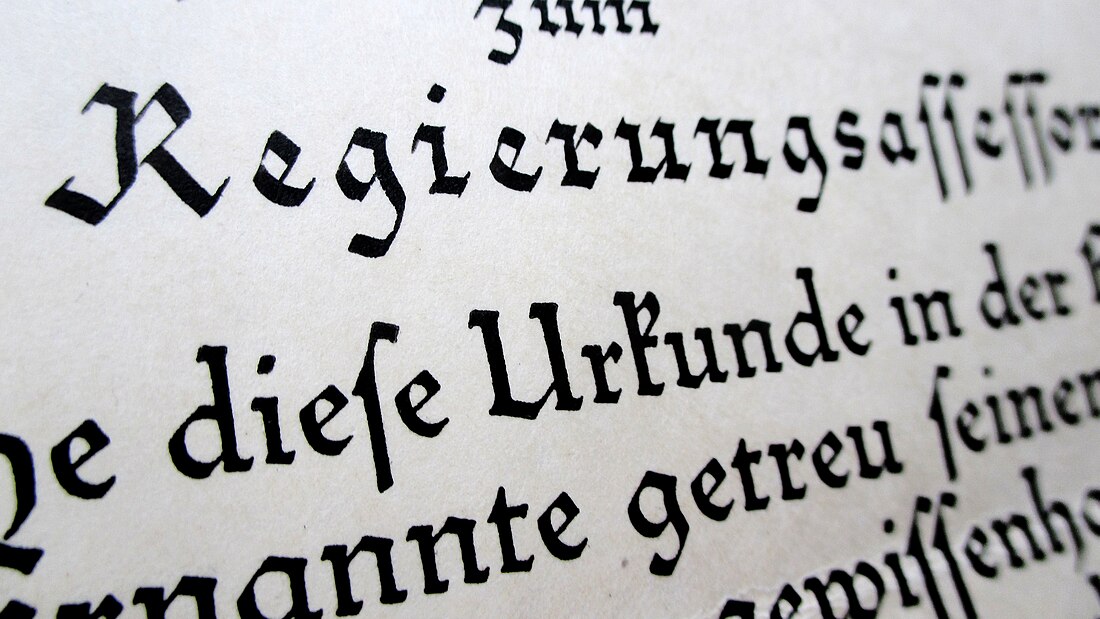 zum
Regierungsaſſeſſor
he dieſe Urkunde in der
ernannte getreu ſeiner
gewiſſenha